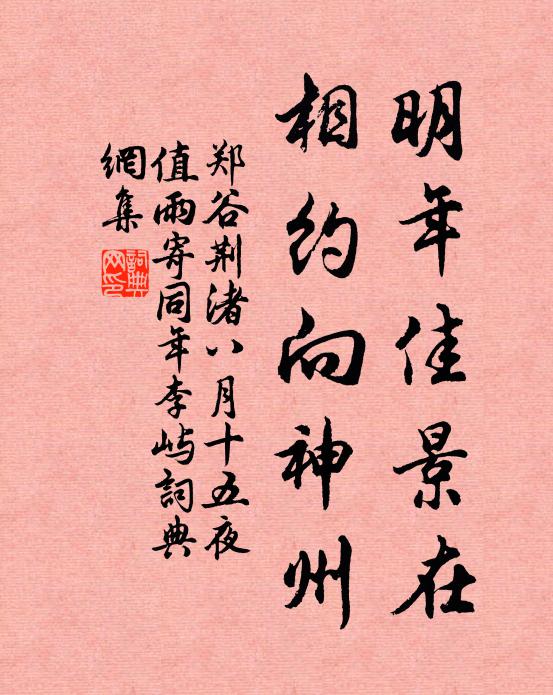 明年佳景在
相约向神州
郑谷荆渚八月十五夜
值雨寄同年李屿詞典
網集
詞典
网印